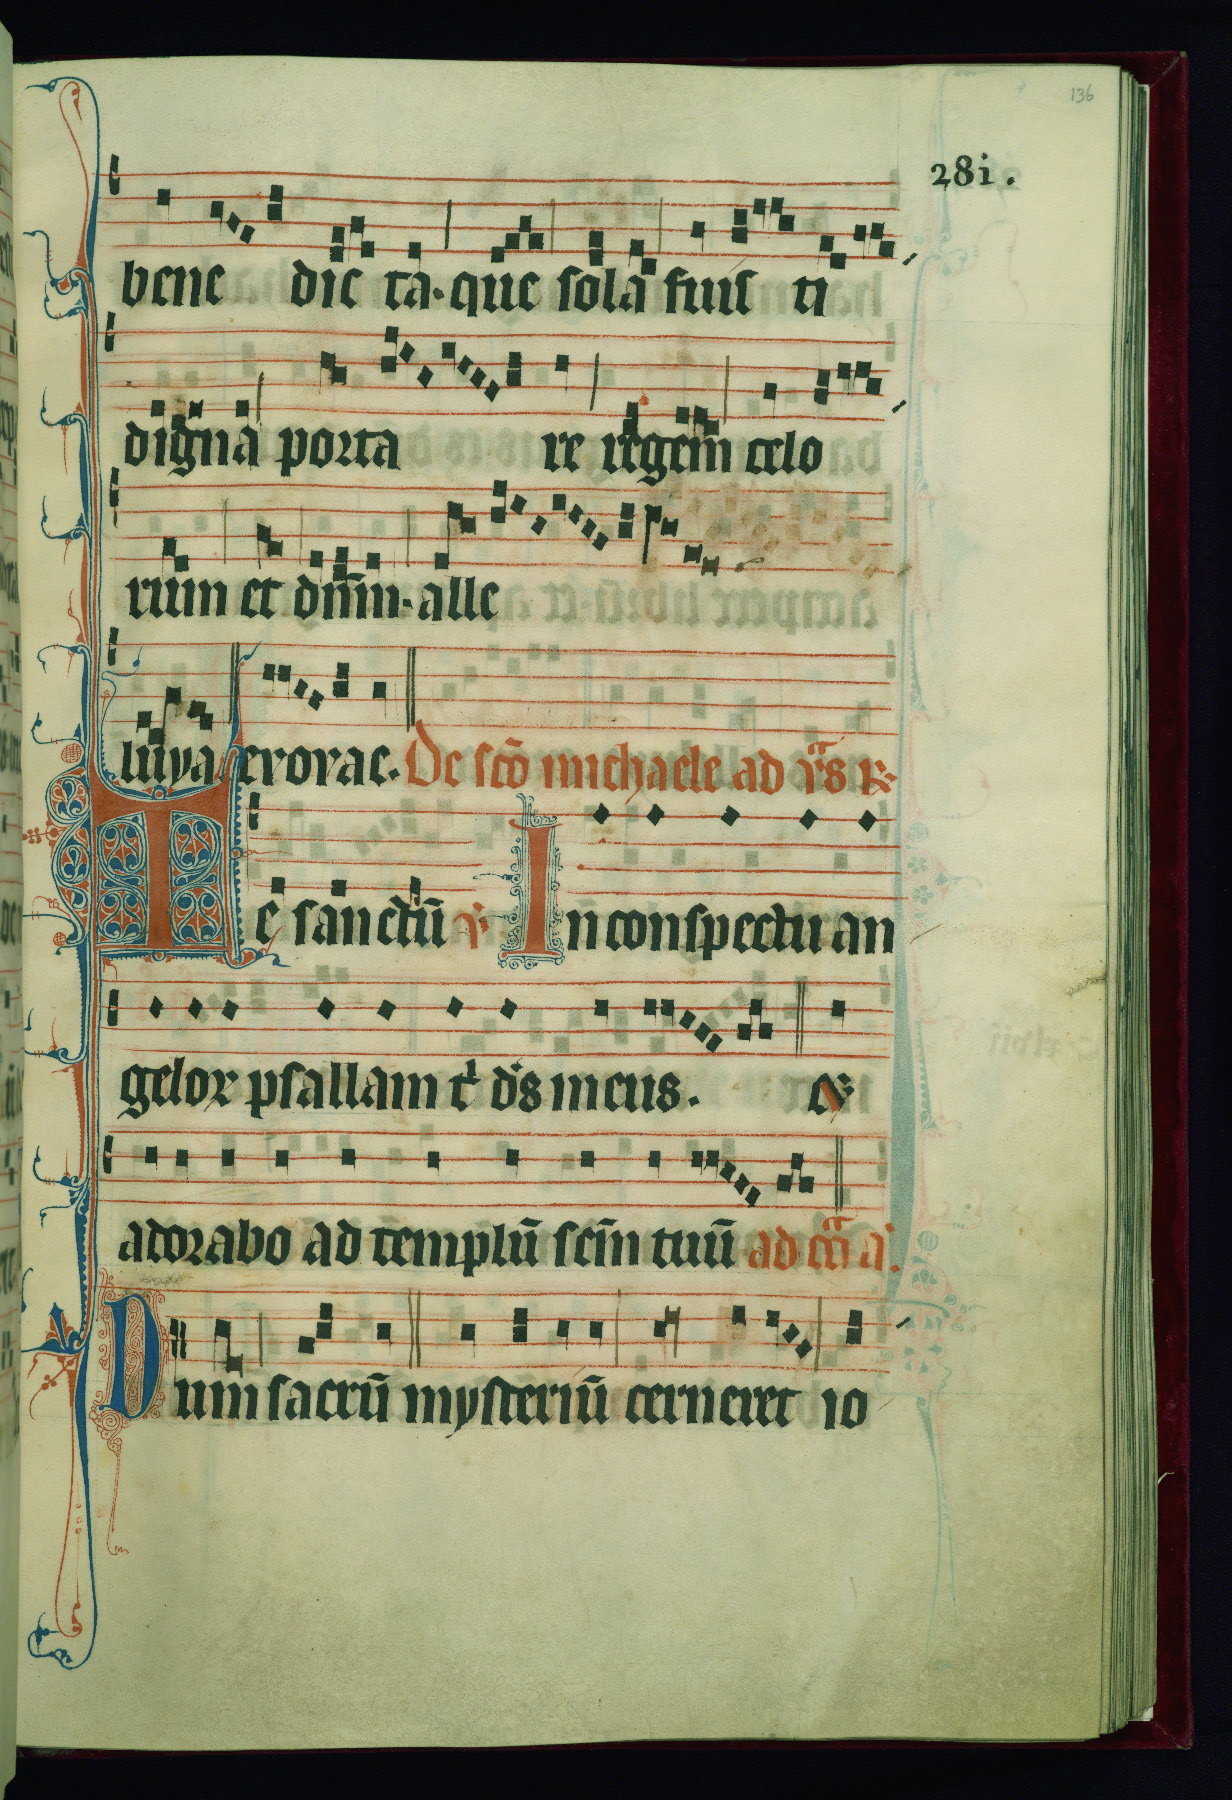 136
28i.
bene dic ta·que sola fuis ti
digna porta re regem celo
rum et dn̄m·alle
luya evovae·De sc̄o michaele ad v̄s R
Te sanctū V In conspectu an
gelor psallam t' ds meus. et
adorabo ad templū scm̄ tuū ad
Dum sacrū mysteriū cerneret io